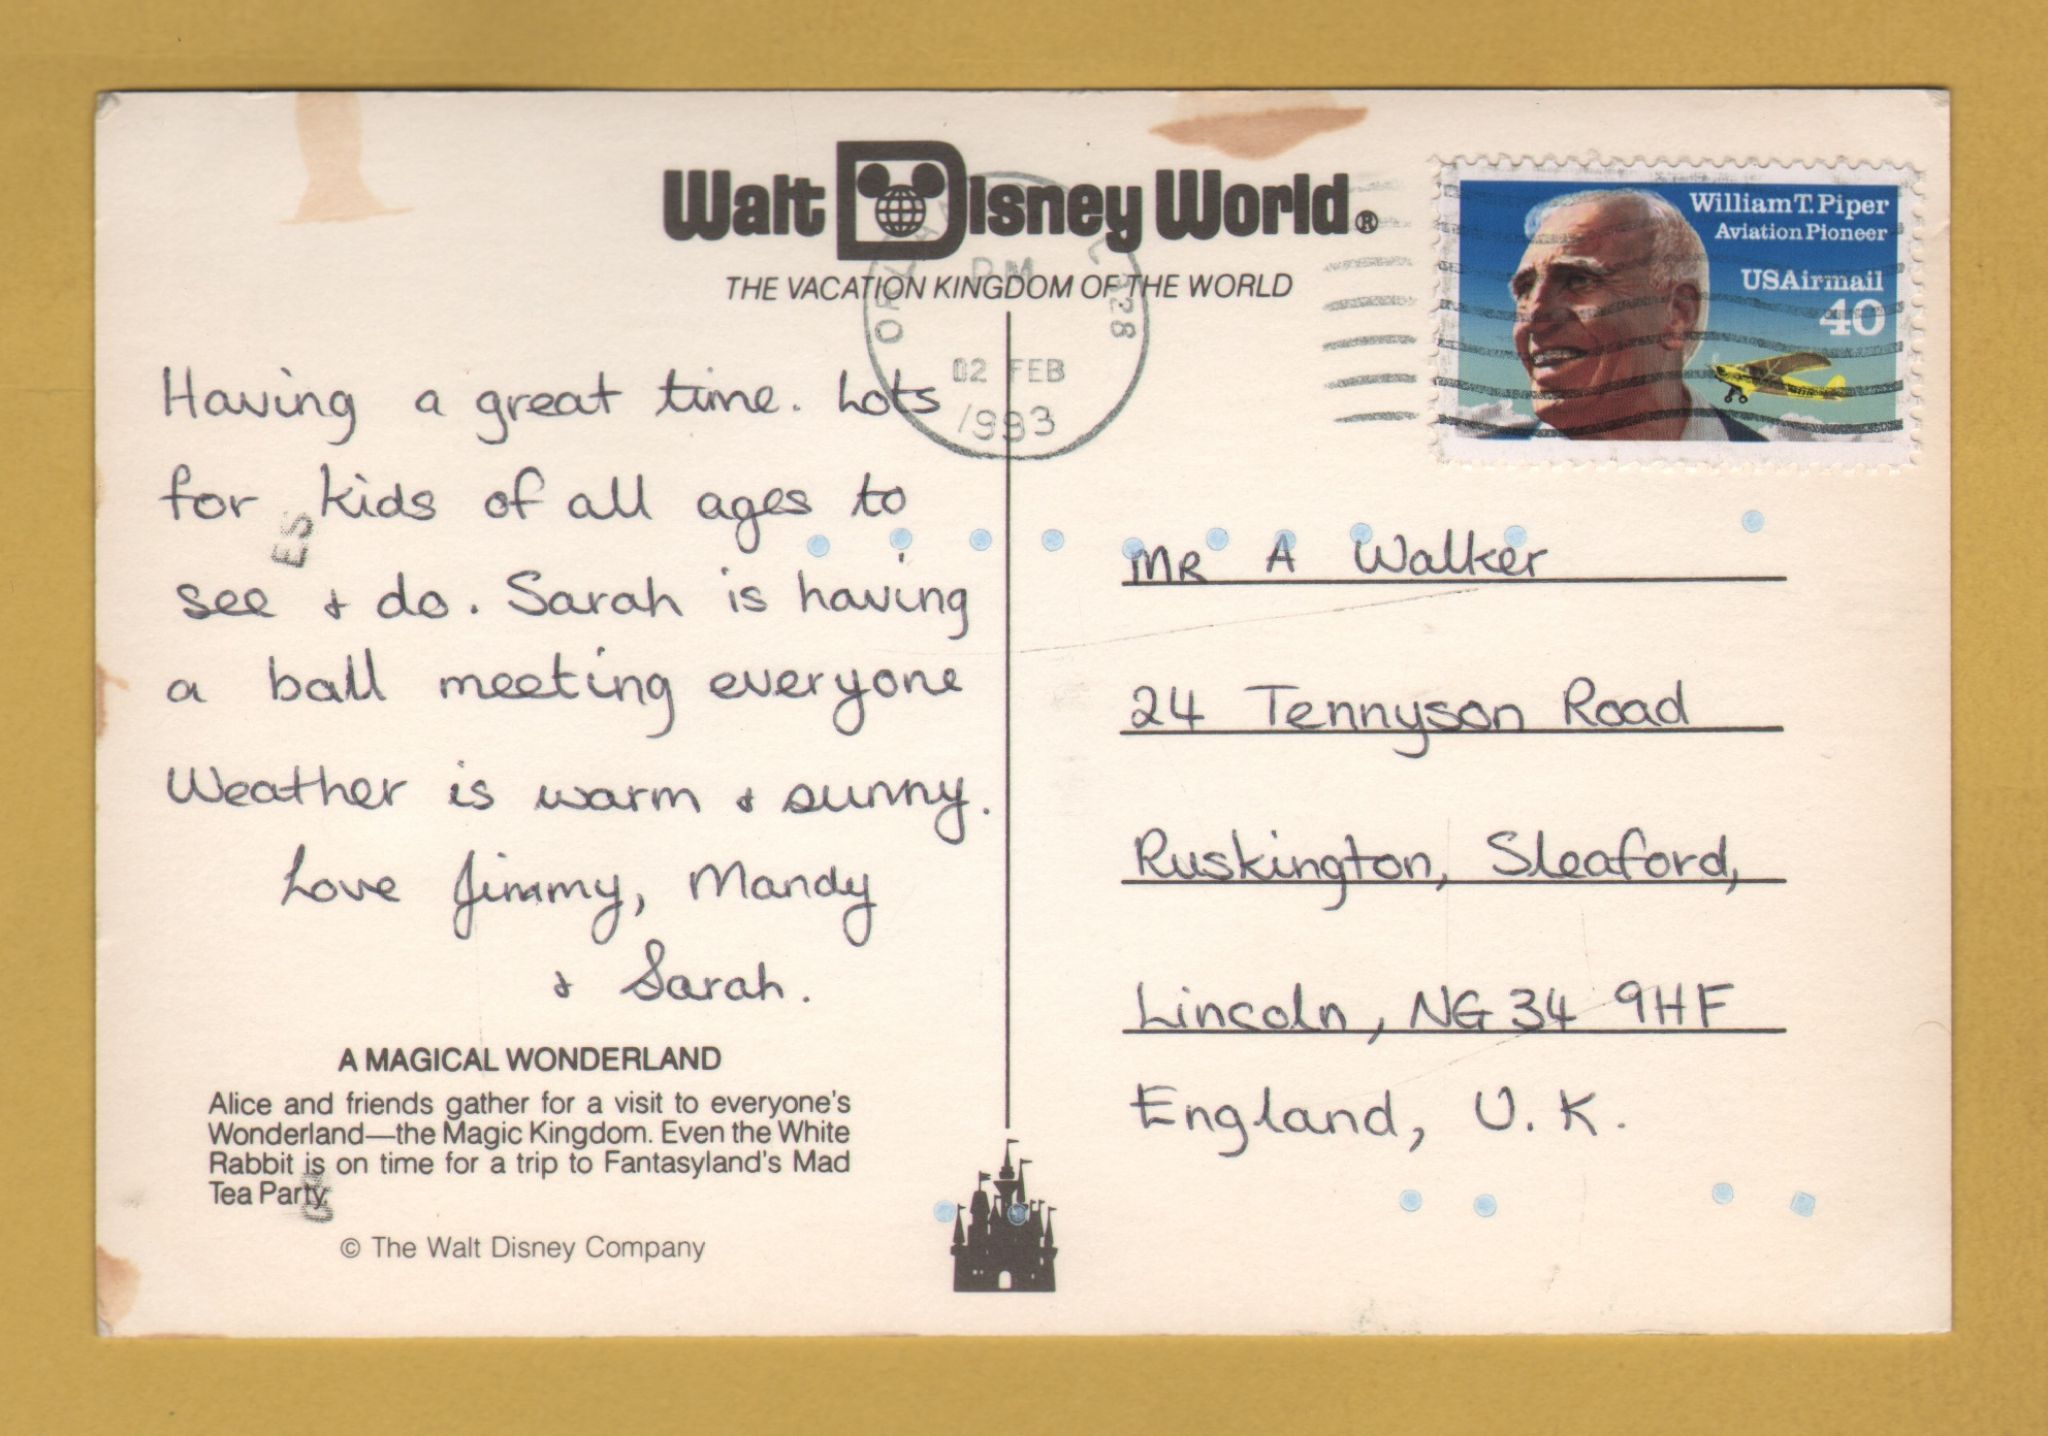 Walt Disney World®
THE VACATION KINGDOM OF THE WORLD
William T. Piper
Aviation Pioneer
USAirmail
40
PM
328
02 FEB
1993
Having a great time. Lots
for kids of all ages to
see & do. Sarah is having
a ball meeting everyone
Weather is warm & sunny.
Love Jimmy, Mandy
& Sarah.
A MAGICAL WONDERLAND
Alice and friends gather for a visit to everyone's
Wonderland—the Magic Kingdom. Even the White
Rabbit is on time for a trip to Fantasyland's Mad
Tea Party.
© The Walt Disney Company
MR A Walker
24 Tennyson Road
Ruskington, Sleaford,
Lincoln, NG34 9HF
England, U.K.
ES